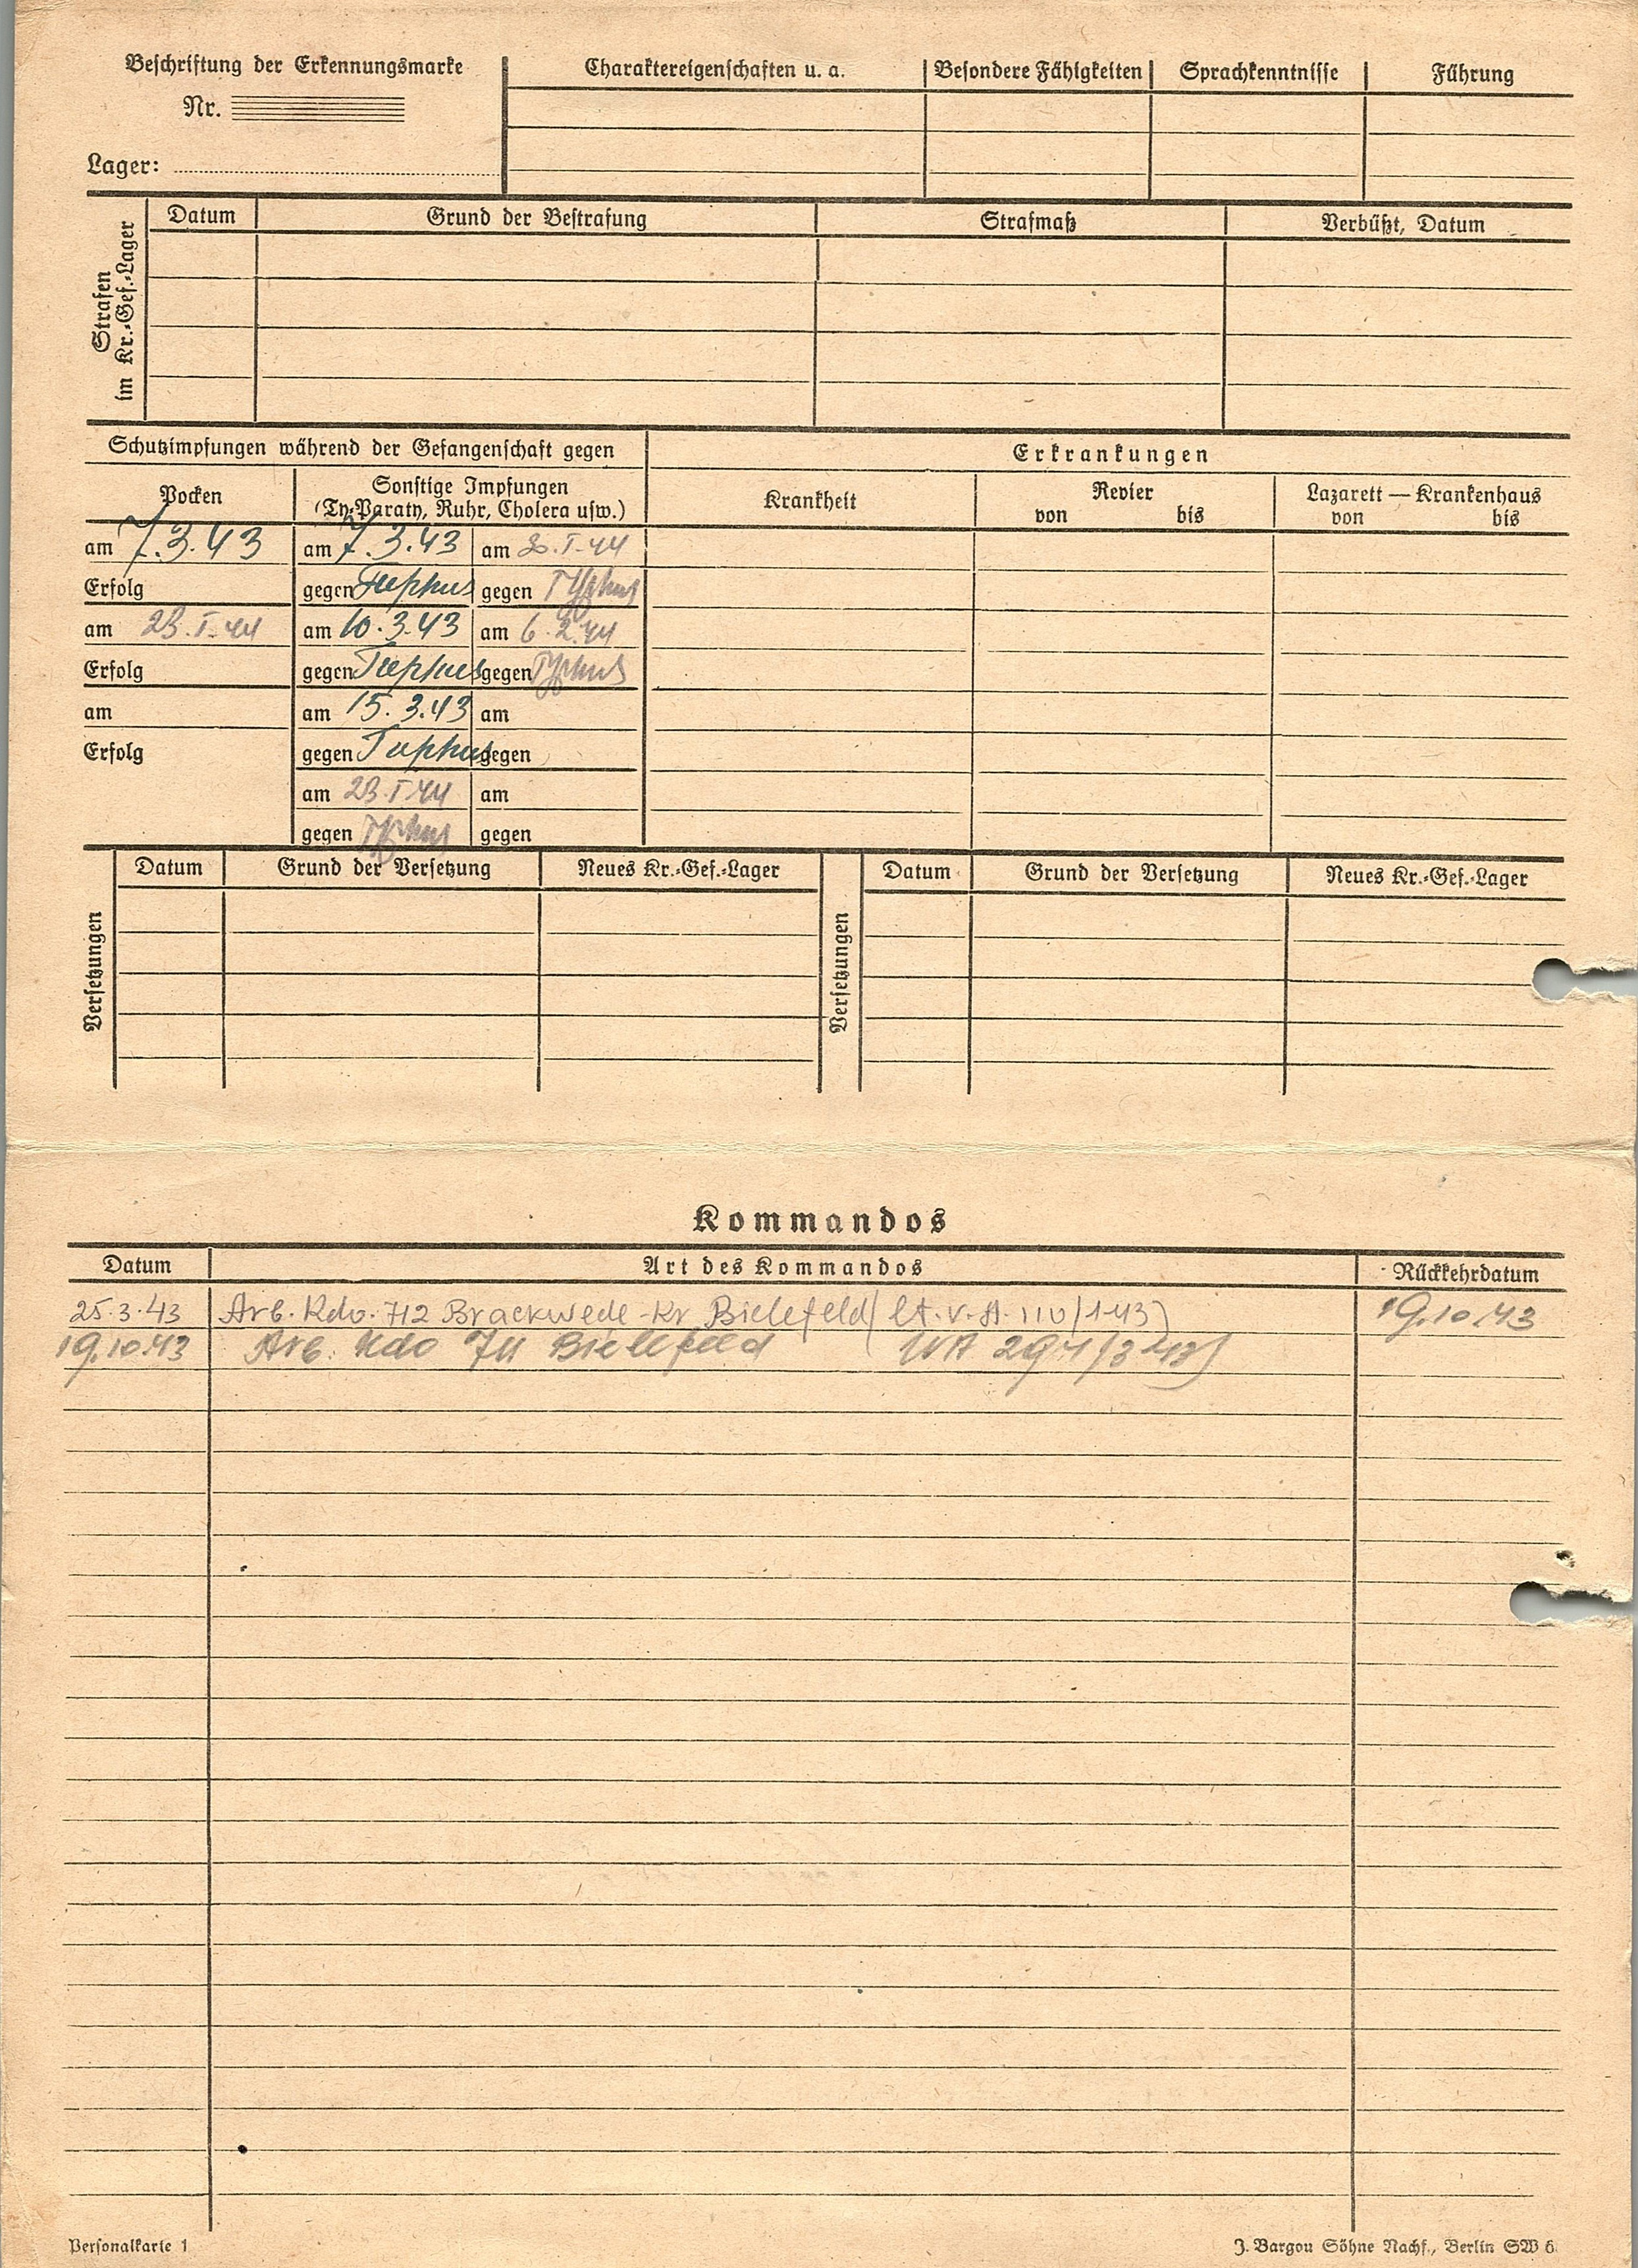 Beschriftung der Erkennungsmarke
Nr.
Lager:
Charaktereigenschaften u. a. Besondere Fähigkeiten Sprachkenntnisse Führung
Strafen
im Kr.-Gef.-Lager
Datum Grund der Bestrafung Strafmaß Verbüßt, Datum
Schutzimpfungen während der Gefangenschaft gegen
Erkrankungen
Pocken
Sonstige Impfungen
(Ty-Paraty, Ruhr, Cholera usw.)
Krankheit
Revier
von bis
Lazarett — Krankenhaus
von bis
am 7.3.43 am 7.3.43 am I.44
Erfolg gegen Typhus gegen Typhus
am 23.I.44 am 10.3.43 am 6.2.44
Erfolg gegen Typhus gegen Typhus
am am 15.3.43 am
Erfolg gegen Typhus gegen
am 23.I.44 am
gegen Typhus gegen
Versetzungen
Datum Grund der Versetzung Neues Kr.-Gef.-Lager
Versetzungen
Datum Grund der Versetzung Neues Kr.-Gef.-Lager
Kommandos
Datum Art des Kommandos Rückkehrdatum
25.3.43 Arb. Kdo. 712 Brackwede-Kr. Bielefeld (lt. V.A. 110/143) 19.10.43
19.10.43 Arb. Kdo Bielefeld
Personalkarte 1
J. Bargou Söhne Nachf., Berlin SW 6